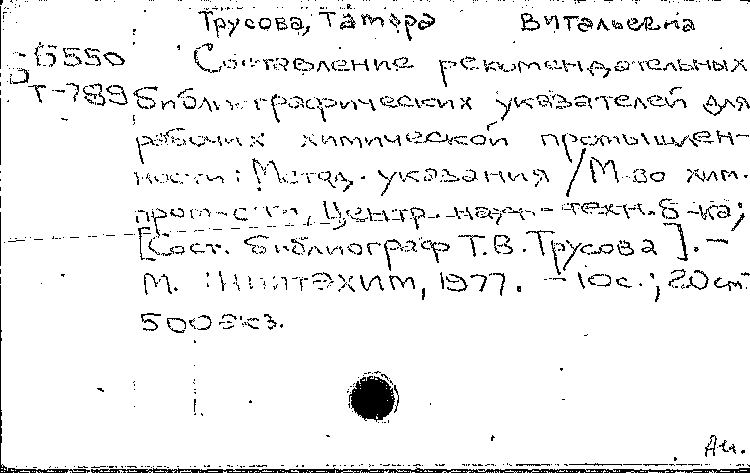 Трусова, Тамара Витальевна
Б550 Составление рекомендательных
Т-789 библиографических указателей для
рабочих химической промышлен-
ности: Метод. указания / М-во хим.
пром-сти, Центр. науч.-техн. б-ка;
[Сост. библиограф Т.В. Трусова]. –
М. : НИИТЭХИМ, 1977. – 10 с.; 20 см
500 экз.